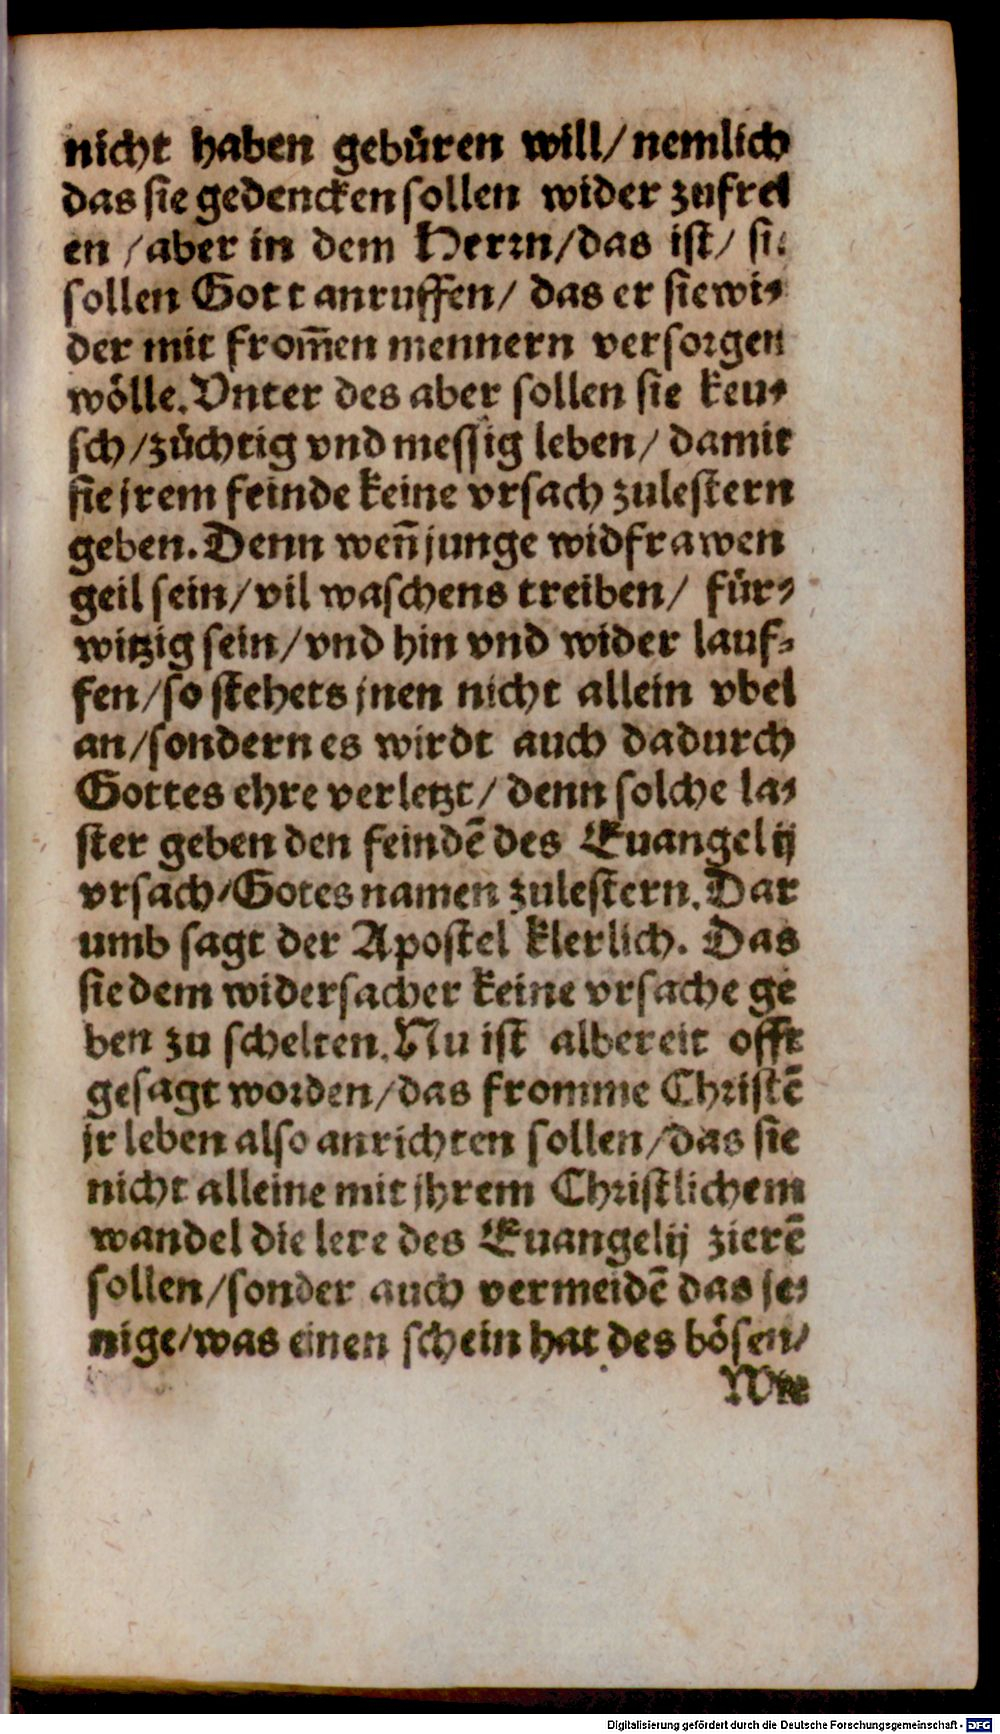 nicht haben gebüren will/ nemlich
das sie gedencken sollen wider zufrei
en / aber in dem Herrn/das ist/ sie
sollen Gott anruffen/ das er sie wi⸗
der mit from̃en mennern versorgen
wölle. Vnter des aber sollen sie keu⸗
sch/züchtig vnd messig leben/ damit
sie jrem feinde keine vrsach zulestern
geben. Denn weñ junge widfrawen
geil sein/ vil waschens treiben/ für⸗
witzig sein/vnd hin vnd wider lauf⸗
fen/so stehets jnen nicht allein vbel
an/sondern es wirdt auch dadurch
Gottes ehre verletzt/ denn solche la⸗
ster geben den feindẽ des Euangelij
vrsach/Gotes namen zulestern. Dar
umb sagt der Apostel klerlich. Das
sie dem widersacher keine vrsache ge
ben zu schelten. Nu ist albereit offt
gesagt worden/das fromme Christẽ
jr leben also anrichten sollen/das sie
nicht alleine mit jhrem Christlichem
wandel die lere des Euangelij zierẽ
sollen/sonder auch vermeidẽ das je⸗
nige/was einen schein hat des bösen/
Wie
Digitalisierung gefördert durch die Deutsche Forschungsgemeinschaft - DFG